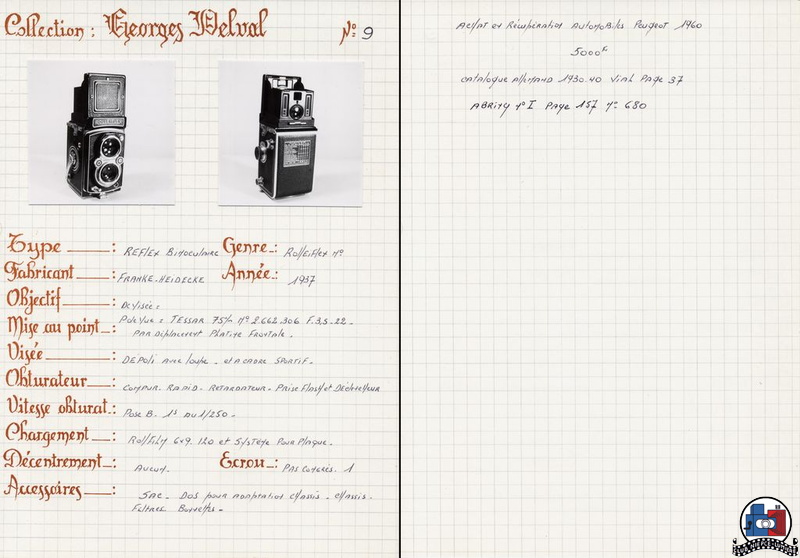 Collection : Georges Delval N°: 9
Type : REFLEX BINOCULAIRE Genre : Rolleiflex N°
Fabricant : FRANKE-HEIDECKE Année : 1937
Objectif : De Visée =
P. de Vue = TESSAR 75m/m N° 2.662.306 F.3,5-22-
Mise au point : PAR DEPLACEMENT PLATINE FRONTALE -
Visée : DEPOLI AVEC loupe - et A CADRE SPORTIF -
Obturateur : COMPUR. RAPID - RETARDATEUR - PRISE FLASH et DECLENCHEUR
Vitesse obturat. : Pose B. 1s AU 1/250 -
Chargement : Rollfilm 6x9. 120 et SYSTEME POUR PLAQUE -
Décentrement : AUCUN. Ecrou : PAS CONGRES. 1
Accessoires : SAC - DOS pour adaptation CHASSIS - CHASSIS -
FILTRES BONNETTES -
ACHAT et Récupération AUTOMOBILES Peugeot 1960
5000Fr
CATALOGUE ALLEMAND 1930.40 VIAL PAGE 37
ABRING N° I PAGE 157 N° 680